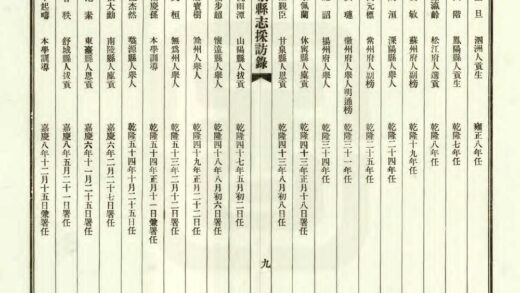 旦 泗洲人貢生 雍正八年任
階 鳳陽縣人貢生 乾隆七年任
瀛齡 松江府人選貢 乾隆八年任
敏 蘇州府人副榜 乾隆十九年任
洹 溧陽縣人舉人 乾隆二十四年任
元標 常州府人副榜 乾隆二十五年任
徽州府人舉人明通榜 乾隆三十一年任
詔 揚州府人舉人 乾隆三十四年任
佩蘭 休寧縣人副貢 乾隆四十三年正月十八日署任
觀臣 甘泉縣人恩貢 乾隆四十三年八月初八日任
縣志採訪錄 九
雨潭 山陽縣人拔貢 乾隆四十七年五月初二日任
步超 懷遠縣人舉人 乾隆四十八年八月初六日署任
寶樹 滁州人舉人 乾隆四十九年正月二十日任
桓 無為州人舉人 乾隆五十三年二月十二日署任
慶孫 本學訓導 乾隆五十四年正月十一日兼署任
杰然 婺源縣人舉人 乾隆五十四年十月二十五日任
大勳 南陵縣人廩貢 嘉慶六年二月二十七日署任
素 東臺縣人恩貢 嘉慶六年十一月二十三日署任
秩 舒城縣人拔貢 嘉慶八年五月二十一日署任
起疇 本學訓導 嘉慶八年十二月十五日兼署任